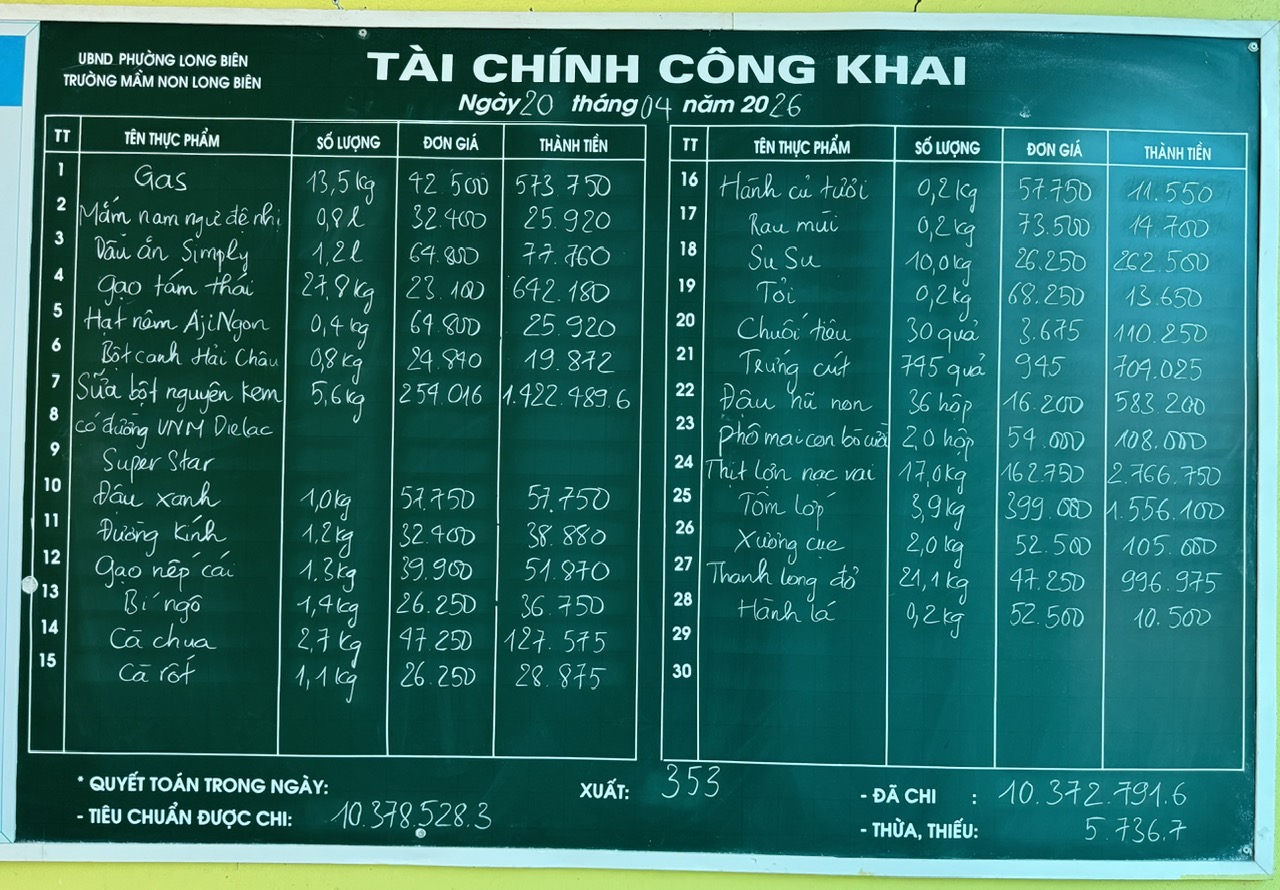 UBND PHƯỜNG LONG BIÊN
TRƯỜNG MẦM NON LONG BIÊN
TÀI CHÍNH CÔNG KHAI
Ngày 20 tháng 04 năm 2026
TT TÊN THỰC PHẨM SỐ LƯỢNG ĐƠN GIÁ THÀNH TIỀN
1 Gas 13,5kg 42.500 573.750
2 Mắm nam ngư đệ nhị 0,8l 32.400 25.920
3 Dầu ăn Simply 1,2l 64.800 77.760
4 Gạo tám thái 27,8kg 23.100 642.180
5 Hạt nêm AjiNgon 0,4kg 64.800 25.920
6 Bột canh Hải Châu 0,8kg 24.840 19.872
7 Sữa bột nguyên kem 5,6kg 254.016 1.422.489.6
8 có đường VNM Dielac
9 Super Star
10 Đậu xanh 1,0kg 57.750 57.750
11 Đường kính 1,2kg 32.400 38.880
12 Gạo nếp cái 1.3kg 39.900 51.870
13 Bí ngô 1,4kg 26.250 36.750
14 Cà chua 2,7kg 47.250 127.575
15 Cà rốt 1,1kg 26.250 28.875
TT TÊN THỰC PHẨM SỐ LƯỢNG ĐƠN GIÁ THÀNH TIỀN
16 Hành củ tười 0,2kg 57.750 11.550
17 Rau mùi 0,2kg 73.500 14.700
18 Su Su 10,0kg 26.250 262.500
19 Tỏi 0,2kg 68.250 13.650
20 Chuối tiêu 30 quả 3.675 110.250
21 Trứng cút 745 quả 945 704.025
22 Đậu hũ non 36 hộp 16.200 583.200
23 phô mai con bò cười 2,0 hộp 54.000 108.000
24 Thịt lợn nạc vai 17,0kg 162.750 2.766.750
25 Tôm lớp 3,9kg 399.000 1.556.100
26 Xương cục 2,0kg 52.500 105.000
27 Thanh long đỏ 21,1kg 47.250 996.975
28 Hành lá 0,2kg 52.500 10.500
29
30
* QUYẾT TOÁN TRONG NGÀY: XUẤT: 353
- TIÊU CHUẨN ĐƯỢC CHI: 10.378.528.3
- ĐÃ CHI : 10.372.791.6
- THỪA, THIẾU: 5.736.7